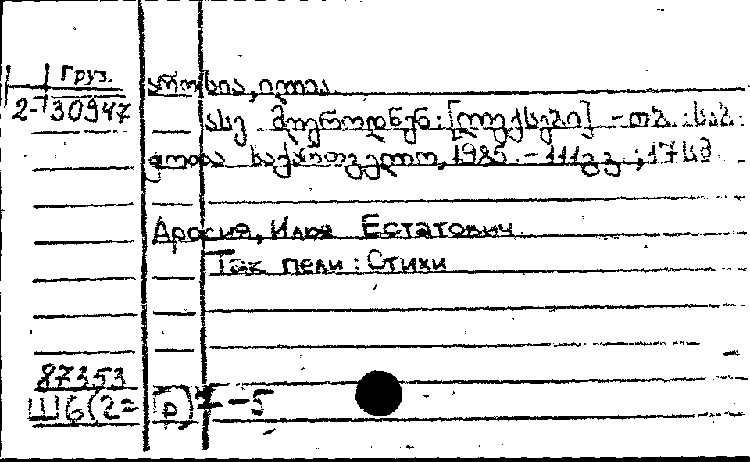 Груз.
2-30947
აროსია, ილია
ასე მღეროდნენ: [ლექსები] - თბ.: საბ.
საქართველო, 1985. - 111გვ.; 17სმ
Аросия, Илья Естатович
Так пели: Стихи
87353
Ш6(2=Гр)7-5